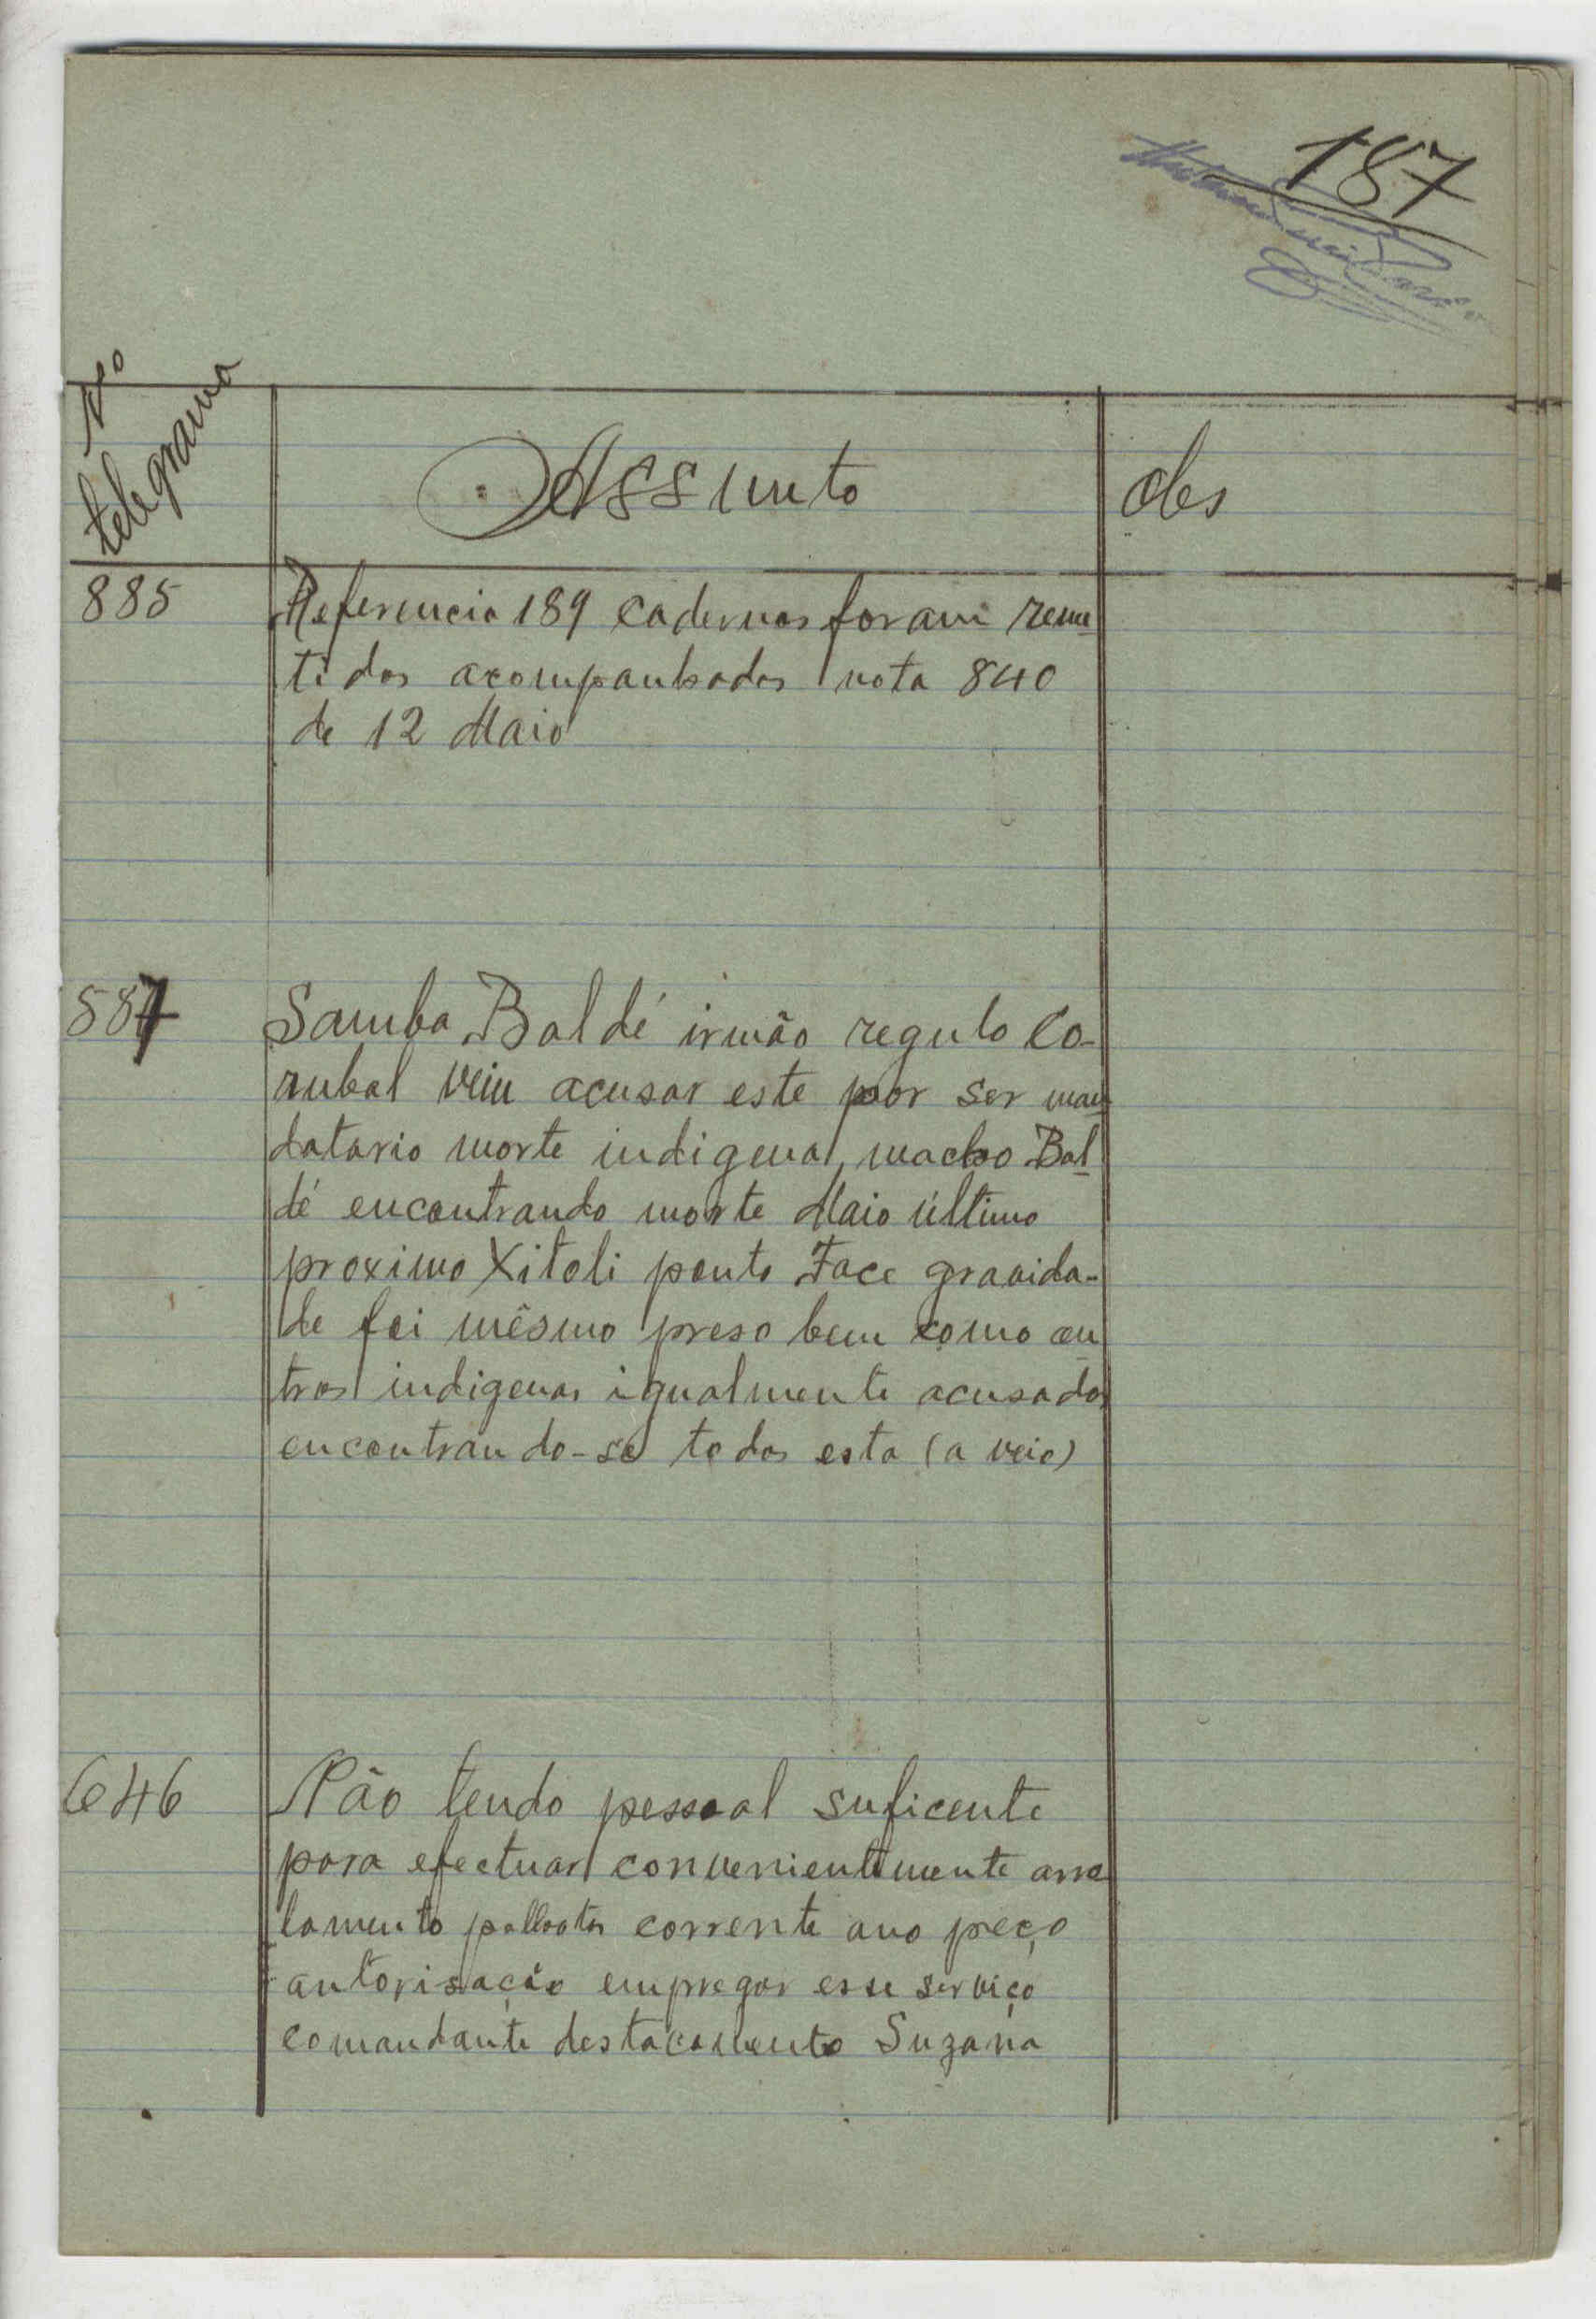 187
Nº
telegrama
Assunto
obs
885
Referencia 189 cadernos foram reme
tidos acompanhados nota 840
de 12 Maio
887
Samba Baldé irmão regulo Co-
rubal veiu acusar este por ser man
datario morte indigena macho Bal
dé encontrando morte Maio último
proximo Xitoli ponto Face gravida-
de foi mêsmo preso bem como ou
tros indigenas igualmente acusados
encontrando-se todos esta (a veio)
646
Não tendo pessoal suficente
para efectuar convenientemente arro
lamento palhotas corrente ano peço
autorisação empregar esse serviço
comandante destacamento Suzana